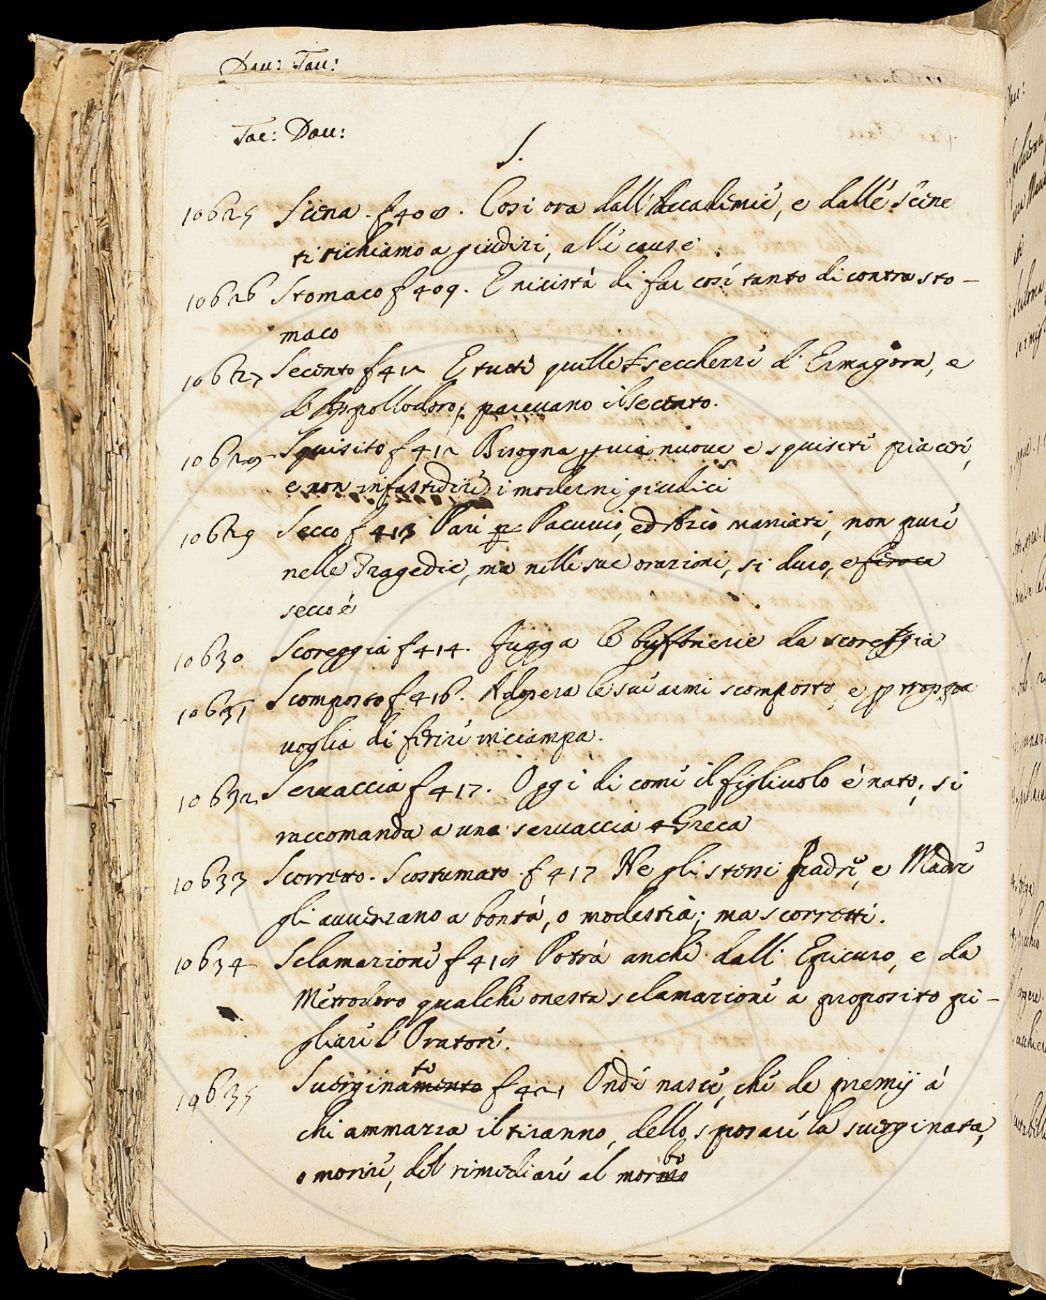 Dau: Tac:
Tac: Dau:
S.
10625 Scena. f 408. Cosi ora dall'Accademie, e dalle Scene
ti richiamo a giudizi, alle cause
10626 Stomaco f 409. E nicistà di far così tanto di contrasto-
maco
10627 Secento f 412 E tutte quelle seccherie d'Ermagora, e
di Appollodoro, pareuano il secento.
10628 Squisito f 412 Bisogna vie nuoue e squisite piacere,
e non infastidire i moderni giudici
10629 Secco f 413 Pari Pacuuio, ed Azio maniati, non pure
nelle Tragedie, ma nelle sue orazioni, si duro, e
secco è
10630 Scoreggia f 414. fugga le buffonerie da scoreggia
10631 Scomposto f 416. Adopera le sue armi scomposto, e troppa
voglia di ferire inciampa.
10632 Seruaccia f 417. Oggi di come il figliuolo è nato, si
raccomanda a una seruaccia Greca
10633 Scorretto. Scostumato. f 417 Ne gli stessi Padri, e Madri
gli auuezzano a bontà, o modestia; ma scorretti.
10634 Sclamazione f 418 Potrà anche dall' Epicuro, e da
Metrodoro qualche onesta sclamazione a proposito pi-
gliare l'Oratore.
10635 Suerginata f 421 Onde nasce, che de premij à
chi ammazza il tiranno, dello sposare la suerginata,
o morire, del rimediare al morbo